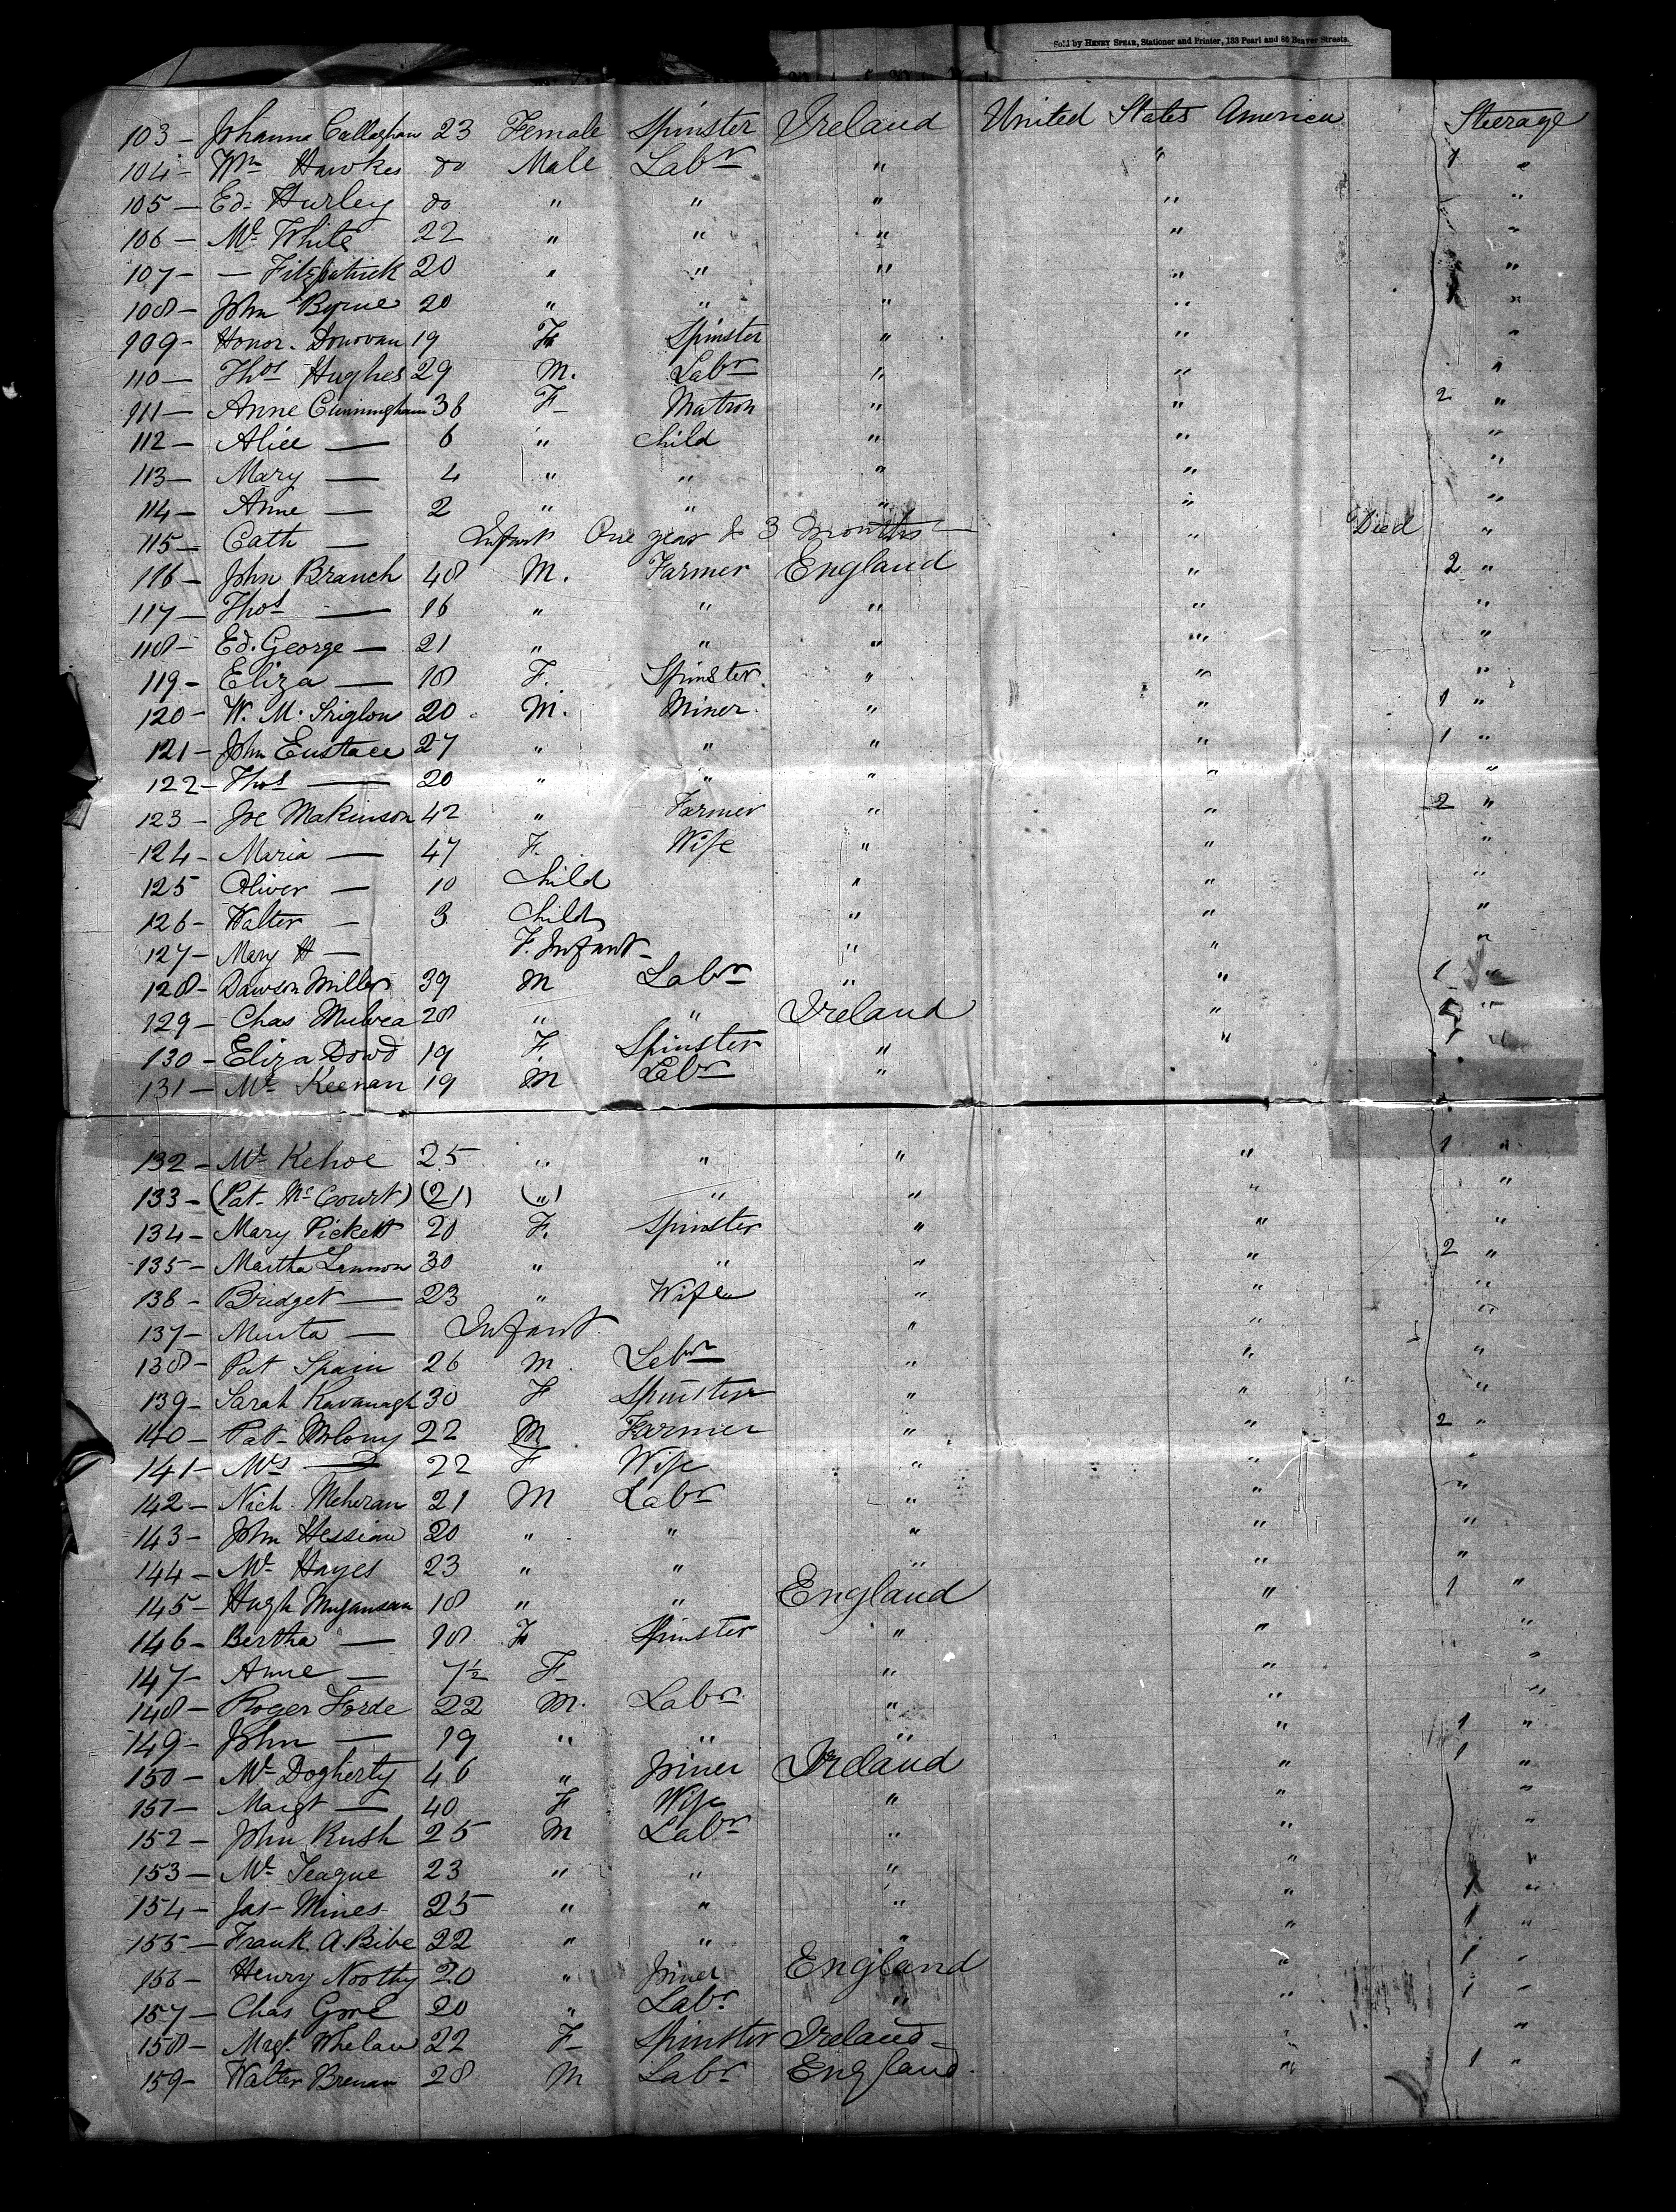 Sold by HENRY SPEAR, Stationer and Printer, 133 Pearl and 86 Beaver Streets.
103 - Johanna Callaghan 23 Female Spinster Ireland United States America Steerage
104 - Wm Hawkes do Male Labr " " 1 "
105 - Ed. Hurley do " " " " "
106 - Ml White 22 " " " " "
107 - — Fitzpatrick 20 " " " " 1 "
108 - John Byrne 20 " " " " 1 "
109 - Honor. Donovan 19 F Spinster " " "
110 - Thos Hughes 29 M. Labr " " "
111 - Anne Cunningham 36 F Matron " " 2 "
112 - Alice — 6 " Child " " "
113 - Mary — 4 " " " " "
114 - Anne — 2 " " " " "
115 - Cath — Infant One year & 3 months — " Died "
116 - John Branch 48 M. Farmer England " 2 "
117 - Thos — 16 " " " " "
118 - Ed. George — 21 " " " " "
119 - Eliza — 18 F. Spinster " " "
120 - W. M. 20 M. Miner " " 1 "
121 - John Eustace 27 " " " " 1 "
122 - Thos — 20 " " " " "
123 - Joe Makinson 42 " Farmer " " 2 "
124 - Maria — 47 F. Wife " " "
125 Oliver — 10 Child " " "
126 - Walter — 3 Child " " "
127 - Mary H — F. Infant " " "
128 - Dawson Miller 39 M Labr " " 1 "
129 - Chas 28 " " Ireland " "
130 - Eliza Dowd 19 F. Spinster " "
131 - Ml Keenan 19 M Labr "
132 - Ml Kehoe 25 " " " " 1 "
133 - (Pat. McCourt) (21) (") " " " "
134 - Mary Pickett 20 F. Spinster " " "
135 - Martha Lennon 30 " " " " 2 "
136 - Bridget — 23 " Wife " " "
137 - — Infant " " "
138 - Pat Spain 26 M Labr " " "
139 - Sarah Kavanagh 30 F Spinster " " "
140 - Pat Molony 22 M Farmer " " 2 "
141 - Mrs — 22 F Wife " " "
142 - Nich. Meheran 21 M Labr " " "
143 - John Hession 20 " " " " "
144 - Ml Hayes 23 " " " " "
145 - Hugh 18 " " England " 1 "
146 - Bertha — 18 F Spinster " " "
147 - Anne — 7½ F " " "
148 - Roger Forde 22 M. Labr " " "
149 - John — 19 " " " " 1 "
150 - Ml Dogherty 46 " Joiner Ireland " 1 "
151 - Margt — 40 F Wife " " "
152 - John Rush 25 M Labr " " "
153 - Ml Teague 23 " " " " "
154 - Jas Mines 25 " " " " 1 "
155 - Frank. A. Bibe 22 " " " " 1 "
156 - Henry Noothy 20 " Joiner England " 1 "
157 - Chas Gore 20 " Labr " " 1 "
158 - Magt. Whelan 22 F Spinster Ireland " "
159 - Walter Brenan 28 M Labr England " 1 "